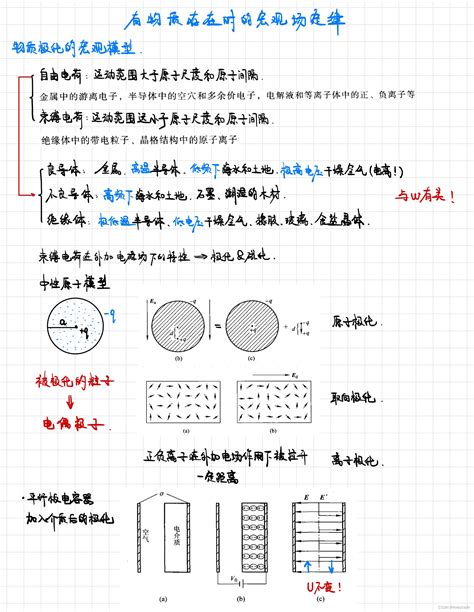 有物质存在时的宏观场定律
物质极化的宏观模型.
自由电荷: 运动范围大于原子尺度和原子间隔.
金属中的游离电子，半导体中的空穴和多余价电子，电解液和等离子体中的正、负离子等
束缚电荷: 运动范围远小于原子尺度和原子间隔.
绝缘体中的带电粒子、晶格结构中的原子离子
良导体: 金属, 高温半导体, 低频下海水和土地, 极高电压干燥空气(电离!)
不良导体: 高频下海水和土地, 石墨, 潮湿的木材.
与W有关!
绝缘体: 极低温半导体, 低电压干燥空气, 橡胶, 玻璃,
束缚电荷在外加电磁场下的特性 ⇒ 极化及磁化.
中性原子模型
-q
a
+q
E₀
-q
d
+q
=
-q
d
+q
-q
原子极化.
(b)
(c)
被极化的粒子
⇓
电偶极子.
E₀
取向极化.
(a)
(b)
正负离子在外加电场作用下被拉开
一段距离
离子极化.
· 平行板电容器
加入介质后的极化
σ
空气
电介质
V₀
E
E'
U不变!
(a)
(b)
(c)